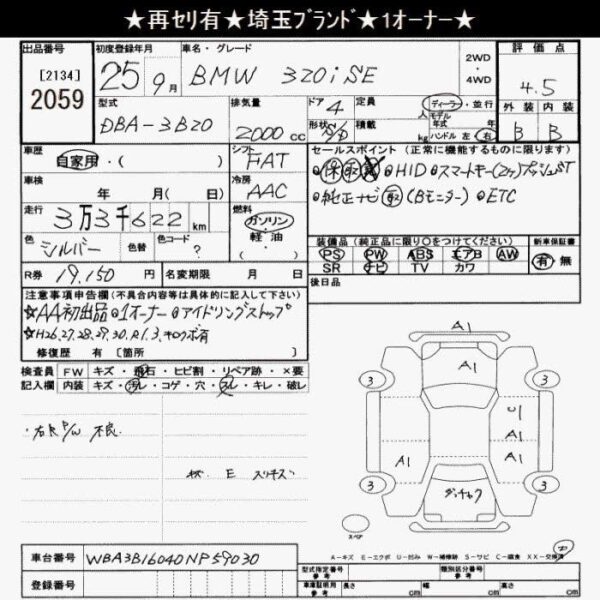 ★再セリ有★埼玉ﾌﾞﾗﾝﾄﾞ★1オーナー★
出品番号 初度登録年月 車名・グレード 評価点
[2134] 2059 25年9月 BMW 320i SE 2WD・4WD 4.5
型式 排気量 ドア 4 定員 人 ディーラー・並行 外装 内装
DBA-3B20 2000cc 形状 S/D 積載 kg モデル年式 年 ハンドル 左 右 B B
車歴 自家用・( ) シフト FAT
セールスポイント (正常に機能するものに限ります)
保 取 HID スマートキー(2ヶ)プッシュST
車検 年 月( 日) 冷房 AAC
純正ナビ取(Bモニター) ETC
走行 3万3千622km 燃料 ガソリン・軽油( )
色 シルバー 色替 色コード ?
装備品 (純正品に限り○をつけてください) 新車保証書
PS PW ABS エアB AW 有 無
SR ナビ TV カワ
R券 19,150円 名変期限 月 日
後日品
注意事項申告欄 (不具合内容等は具体的に記入して下さい)
☆AA初出品 1オーナー アイドリングストップ
☆H26.27.28.29.30.R1.3.キロク有
修復歴 有 [箇所 ]
検査員記入欄 FW キズ・飛石・ヒビ割・リペア跡・×要
内装 キズ・汚レ・コゲ・穴・スレ・キレ・破レ
右R P/W 不良
キズ E スリキズ
A1
A1
3 3
U1
A1 A1
A1
3 3
ダッチャク
スペア
A-キズ E-エクボ U-凹み W-補修跡 S-サビ C-腐食 XX-交換済
車台番号 WBA3B16040NP59030
登録番号
型式指定番号 参考 類別区分番号 参考
車庫証明用 参考 長さ cm 幅 cm 高さ cm